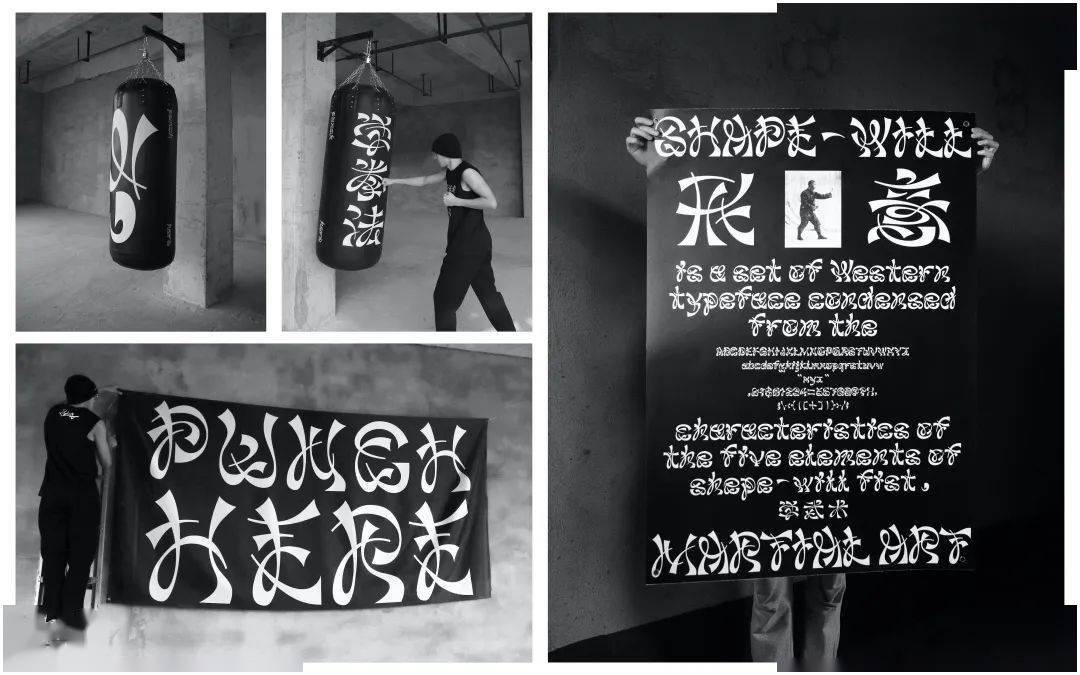 PUNCH
HERE
SHAPE-WILL
形 意
is a set of Western
typeface condensed
from the
ABCDEFGHIJKLMNOPQRSTUVWXYZ
abcdefghijklmnopqrstuvw
"xyz"
characteristics of
the five elements of
shape-will fist,
MARTIAL ART